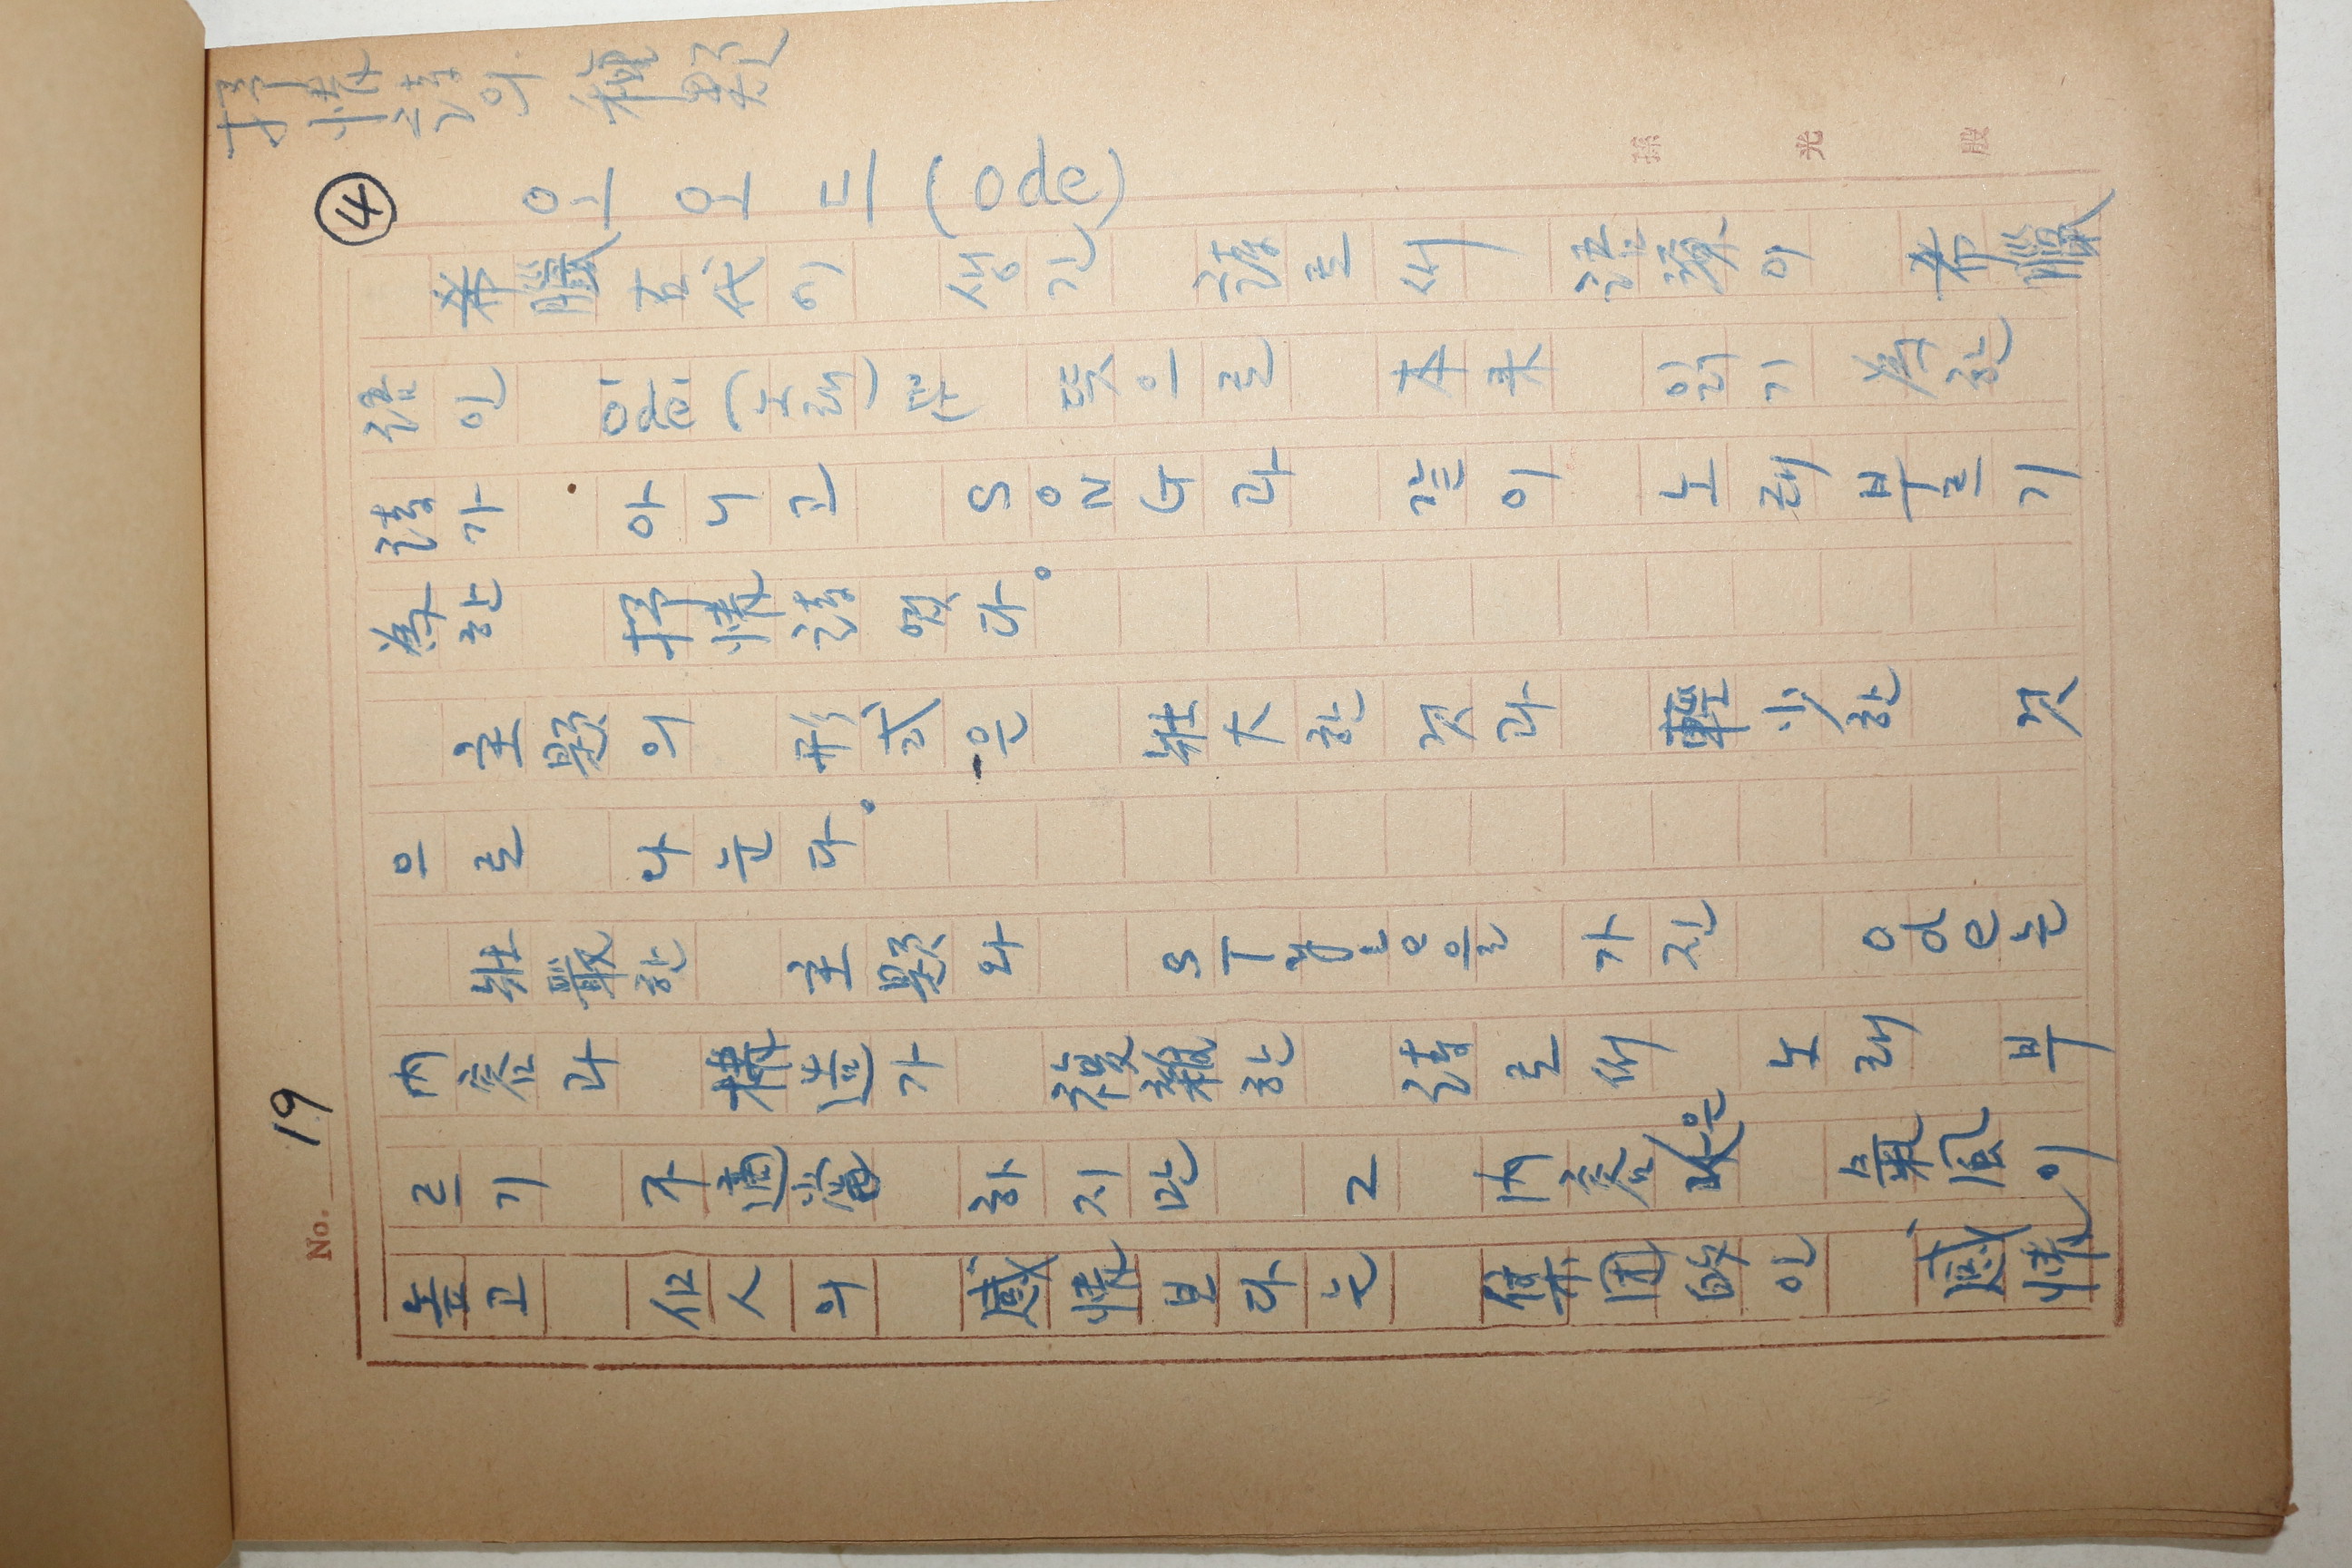 抒情詩의 種類
④ 오오드 (ode)
希臘古代에 생긴 詩로서 語源이 希臘
語인 (노래) 뜻으로 本来 읽기 爲한
詩가 아니고 SONG과 같이 노래부르기
爲한 抒情詩였다。
主題의 形式은 壯大한 것과 輕少한 것
으로 나눈다。
壯嚴한 主題와 STYLE을 가진 Ode는
內容과 構造가 複雜한 詩로서 노래 부
르기 不適當하지만 그 內容은 氣風이
높고 個人의 感情보다는 集団的인 感情
No. 19
孫光殷